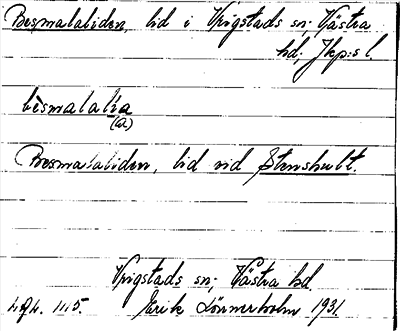 Besmalaliden, lid i Vrigstads sn; Västra
hd, Jkp:s l.
bèsmalalia
(a)
Besmalaliden, lid vid Stenshult.
Vrigstads sn; Västra hd.
Erik Lönnerholm 1931.